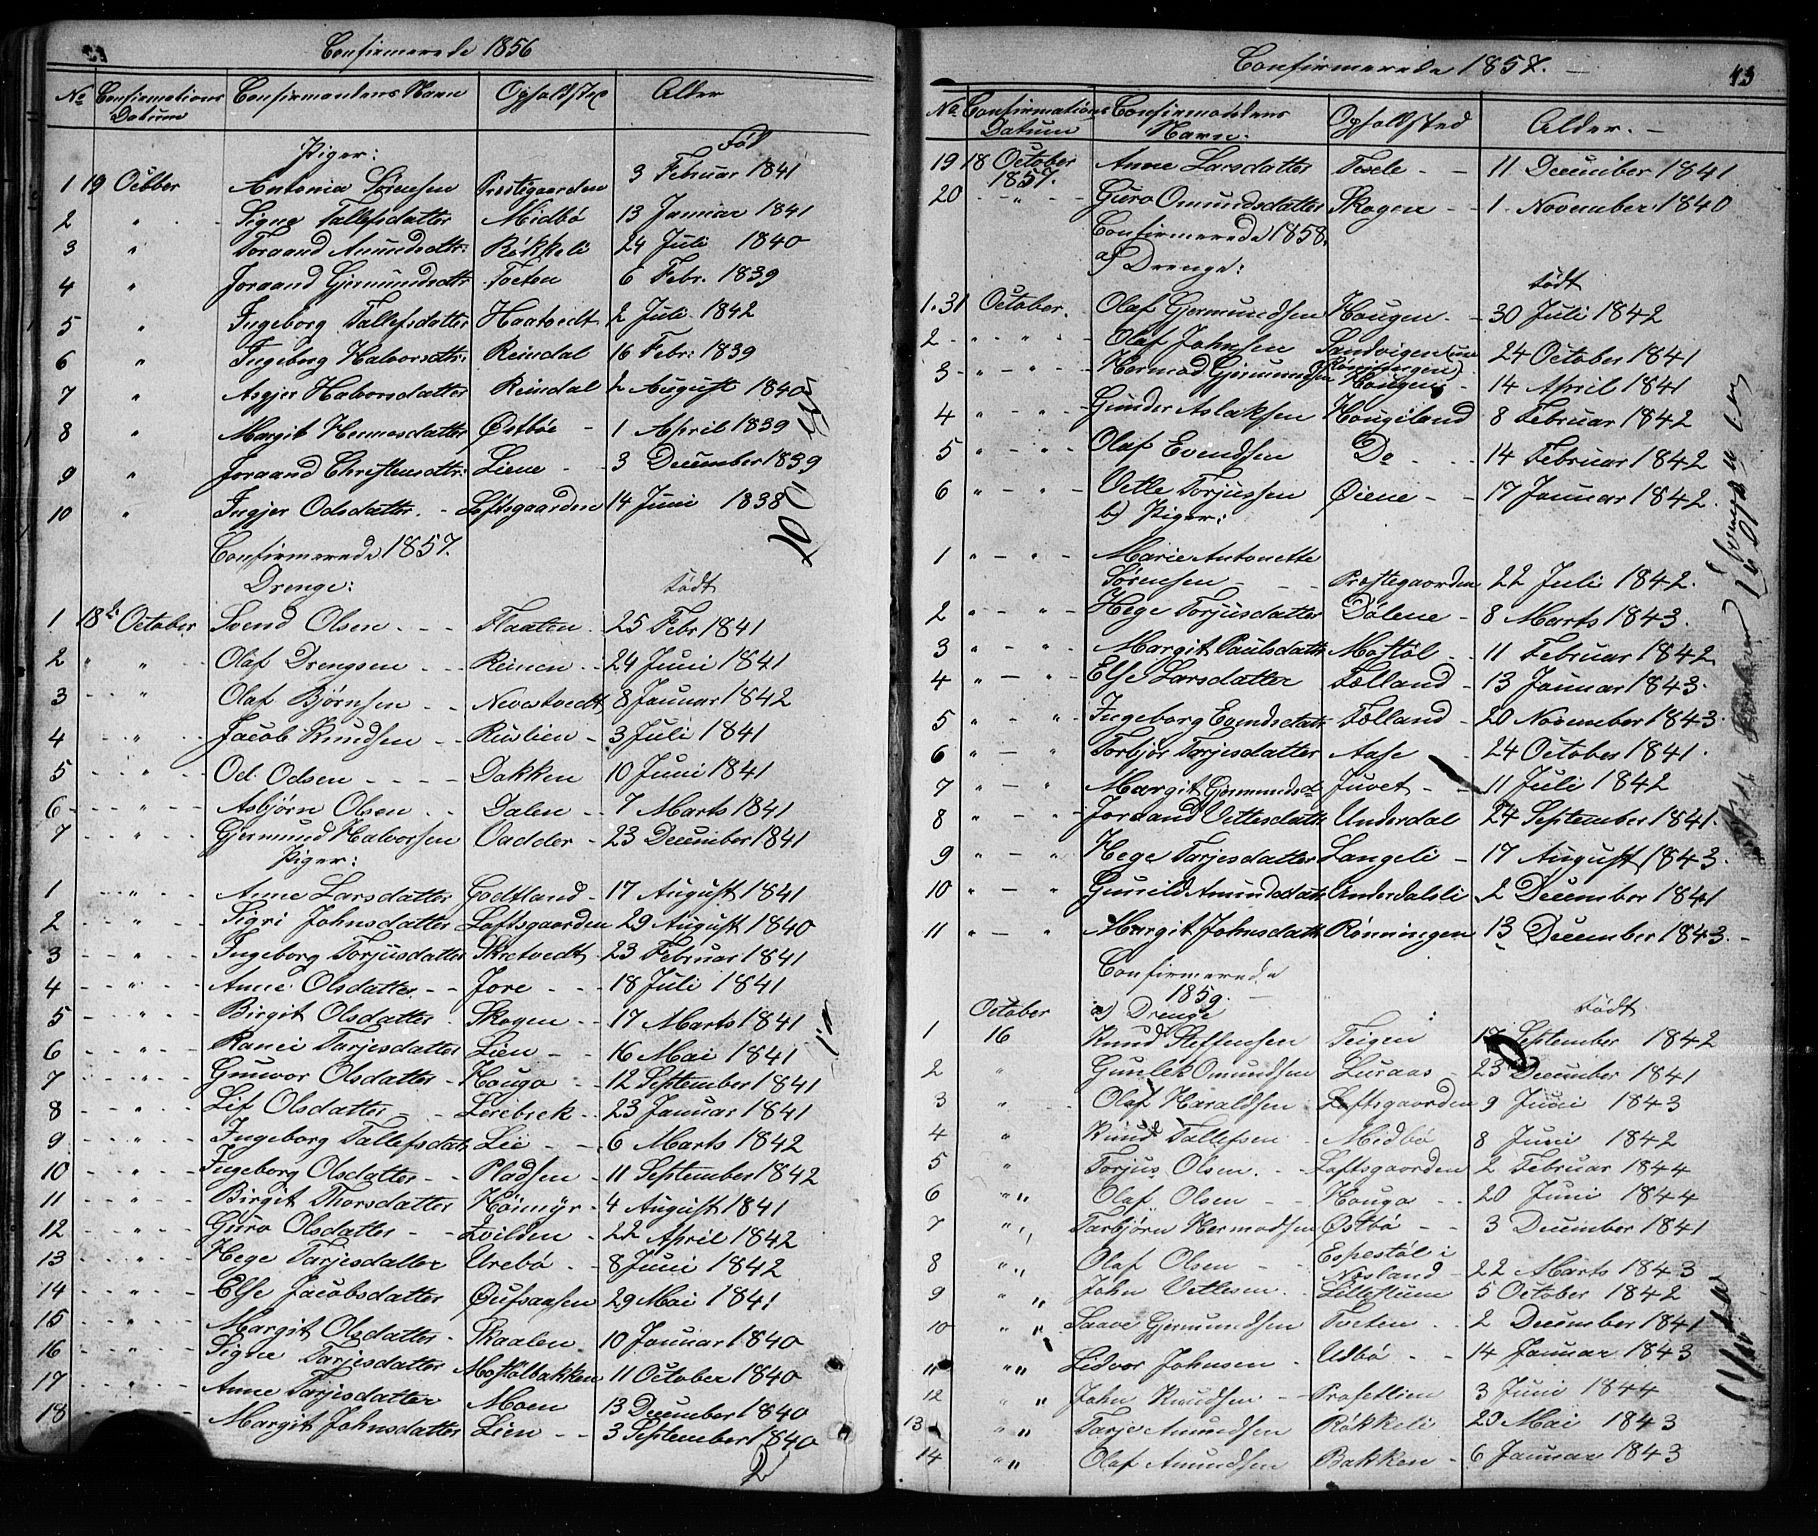 Confirmerede 1856
No Confirmations Datum Confirmandens Navn Opholdsted Alder
Piger: Fød
1 19 Octbber Antonia Sørensen Prestegaarden 3 Februar 1841
2 " Signe Tallefsdatter Midbö 13 Januar 1841
3 " Toraand Amundsdtr: Røkkeli 24 Juli 1840
4 " Joraand Gjermundsdtr: Tveten 6 Febr. 1839
5 " Ingeborg Tallefsdatter Haatvedt 2 Juli 1842
6 " Ingeborg Halvorsdtr: Reindal 16 Febr: 1839
7 " Asgjer Halvorsdatter Reindal 2 August 1840
8 " Margit Hermosdatter Østbøe - 1 April 1839
9 " Joraand Christensdtr: Liene - 3 December 1839
10 " Ingjer Odsdatter. - Loftsgaarden 14 Juni 1838
Confirmerede 1857.
Drenge: Födt
1 18d. October Svend Olsen - - - Flaaten - 25 Febr 1841
2 " " Olaf Drengsen - - Reinen - 24 Juni 1841
3 - - " Olaf Bjørnsen - - Nevestvedt 8 Januar 1842
4 - - " Jacob Knudsen - - Rulien - 3 Juli 1841
5 - - " Od. Odsen - - - - Dakken 10 Juni 1841
6 - - " Asbjörn Olsen - - Dalen - 7 Marts 1841
7 - - " Gjermund Halvorsen Oadder - 23 December 1841
Piger:
1 - - " - Anne Larsdatter Godtland - 17 August 1841
2 - - " - Sigri Johnsdatter Loftsgaarden 29 August 1840
3 - - " - Ingeborg Torjusdatter Skretvedt - 23 Februar 1841
4 - - " - Anne Olsdatter - - Jore - - - 18 Juli 1841
5 - - " - Birgit Olsdatter - Skogen - - 17 Marts 1841
6 - - " - Ranei Tarjesdatter Lien - - 16 Mai 1841
7 - - " - Gunvor Olsdatter - Houga - 12 September 1841
8 - - " - Lif Olsdatter - Lerebrek - 23 Januar 1841
9 - - " - Ingeborg Tallefsdatr Lie - - - 6 Marts 1842
10 - - " - Ingeborg Olsdatter - - Pladsen - 11 September 1842
11 - - " - Birgit Thorsdatter Hömÿr - 4 August 1841
12 - - " - Guro Olsdatter - - Zvilden - 22 April 1842
13 - - " - Hege Tarjesdatter Urebö - 8 Juni 1842
14 - - " - Else Jacobsdatter Øufsaasen 29 Mai 1841
15 - - " - Margit Olsdatter - Skaalen - 10 Januar 1840
16 - - " - Signe Tarjesdatter Mostölbakken 11 October 1840
17 - - " - Anne Tarjesdatter Moen - 13 December 1840
18 Margit Johnsdatter Lien - - 3 September 1840
Confirmerede 1857. - 43
No. Confirmations Datum Confirmandens Navn: Opholdsted Alder. -
19 18 October 1857. Anne Larsdatter Tesele - - 11 December 1841
20 - - " - Guro Omundsdatter Skogen - - 1 November 1840
Confirmerede 1858.
a) Drenge: Födt
1. 31 October. Olaf Gjermundsen Hougen - - 30 Juli 1842
2 - " - " - Olaf Johnsen Sandvigen (un Rønningen) 24 October 1841
3 - " - " - Hermod Gjermundsen Hougen - 14 April 1841
4 " - " - Gunder Aslaksen Hougiland 8 Februar 1842
5 " - " - Olaf Evendsen Do - - 14 Februar 1842
6 " - " - Vetle Torjussen Øiene - - 17 Januar 1842.
b) Piger:
1 " - " - Marie Antonette Sørensen - - Præstegaarden 22 Juli 1842.
2 " - " - Hege Torjusdatter Dölene - 8 Marts 1843.
3 " - " - Margit Paulsdatr Mostöl - 11 Februar 1842
4 " - " - Else Larsdatter Tælland - 13 Januar 1843.
5 " - " Ingeborg Evendsdatr Tælland - 20 November 1843.
6 " - " Torbjør Torjesdatter Aase - 24 October 1841.
7 " - " Margit Gjermundsd Juvet - - 11 Juli 1842
8 " - " Joraand Vetlesdatr Underdal 24 September 1841.
9 " - " Hege Tarjesdatter Langeli - 17 August 1843.
10 " - " Gunild Amundsdatr Underdalsli 2 December 1841
11 " - " Margit Johnsdatr Rønningen 13 December 1843. -
Confirmerede
1859. -
October a) Drenge födt
1 16 Knud Steffensen Teigen 17 September 1842
2 " Gunlek Omundsen Luraas - 23 December 1841
3 " Olaf Haraldsen Loftsgaarden 9 Juni 1843
4 " Knud Tallefsen - Midbö 8 Juni 1842
5 " Torjus Olsen. - Loftsgaarden 2 Februar 1844
6 " " Olaf Olsen - - Houga - - 20 Juni 1844
7 " " Tarbjörn Hermodsen Østbö - - 3 December 1841
8 " " Olaf Olsen - - Espestöl i Næsland - 22 Marts 1843
9 " " John Vetlesen. - 5 October 1842
10 " " Saave Gjermundsen Tveten - - 2 December 1841
11 " " Lidvor Johnsen - Udbö - - 14 Januar 1843
12 " " John Knudsen - 3 Juni 1844
13 " " Tarje Amundsen Røkkeli - 29 Mai 1843
14 " " Olaf Amundsen Bakken - 6 Januar 1843